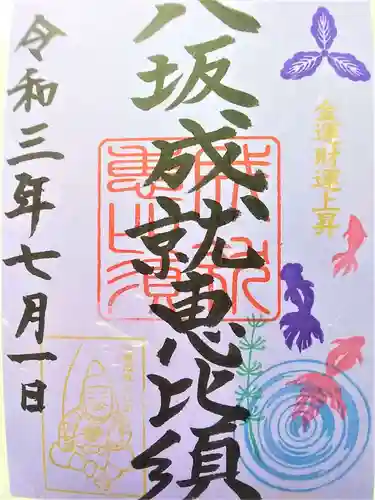 八坂成就恵比須
金運財運上昇
令和三年七月一日